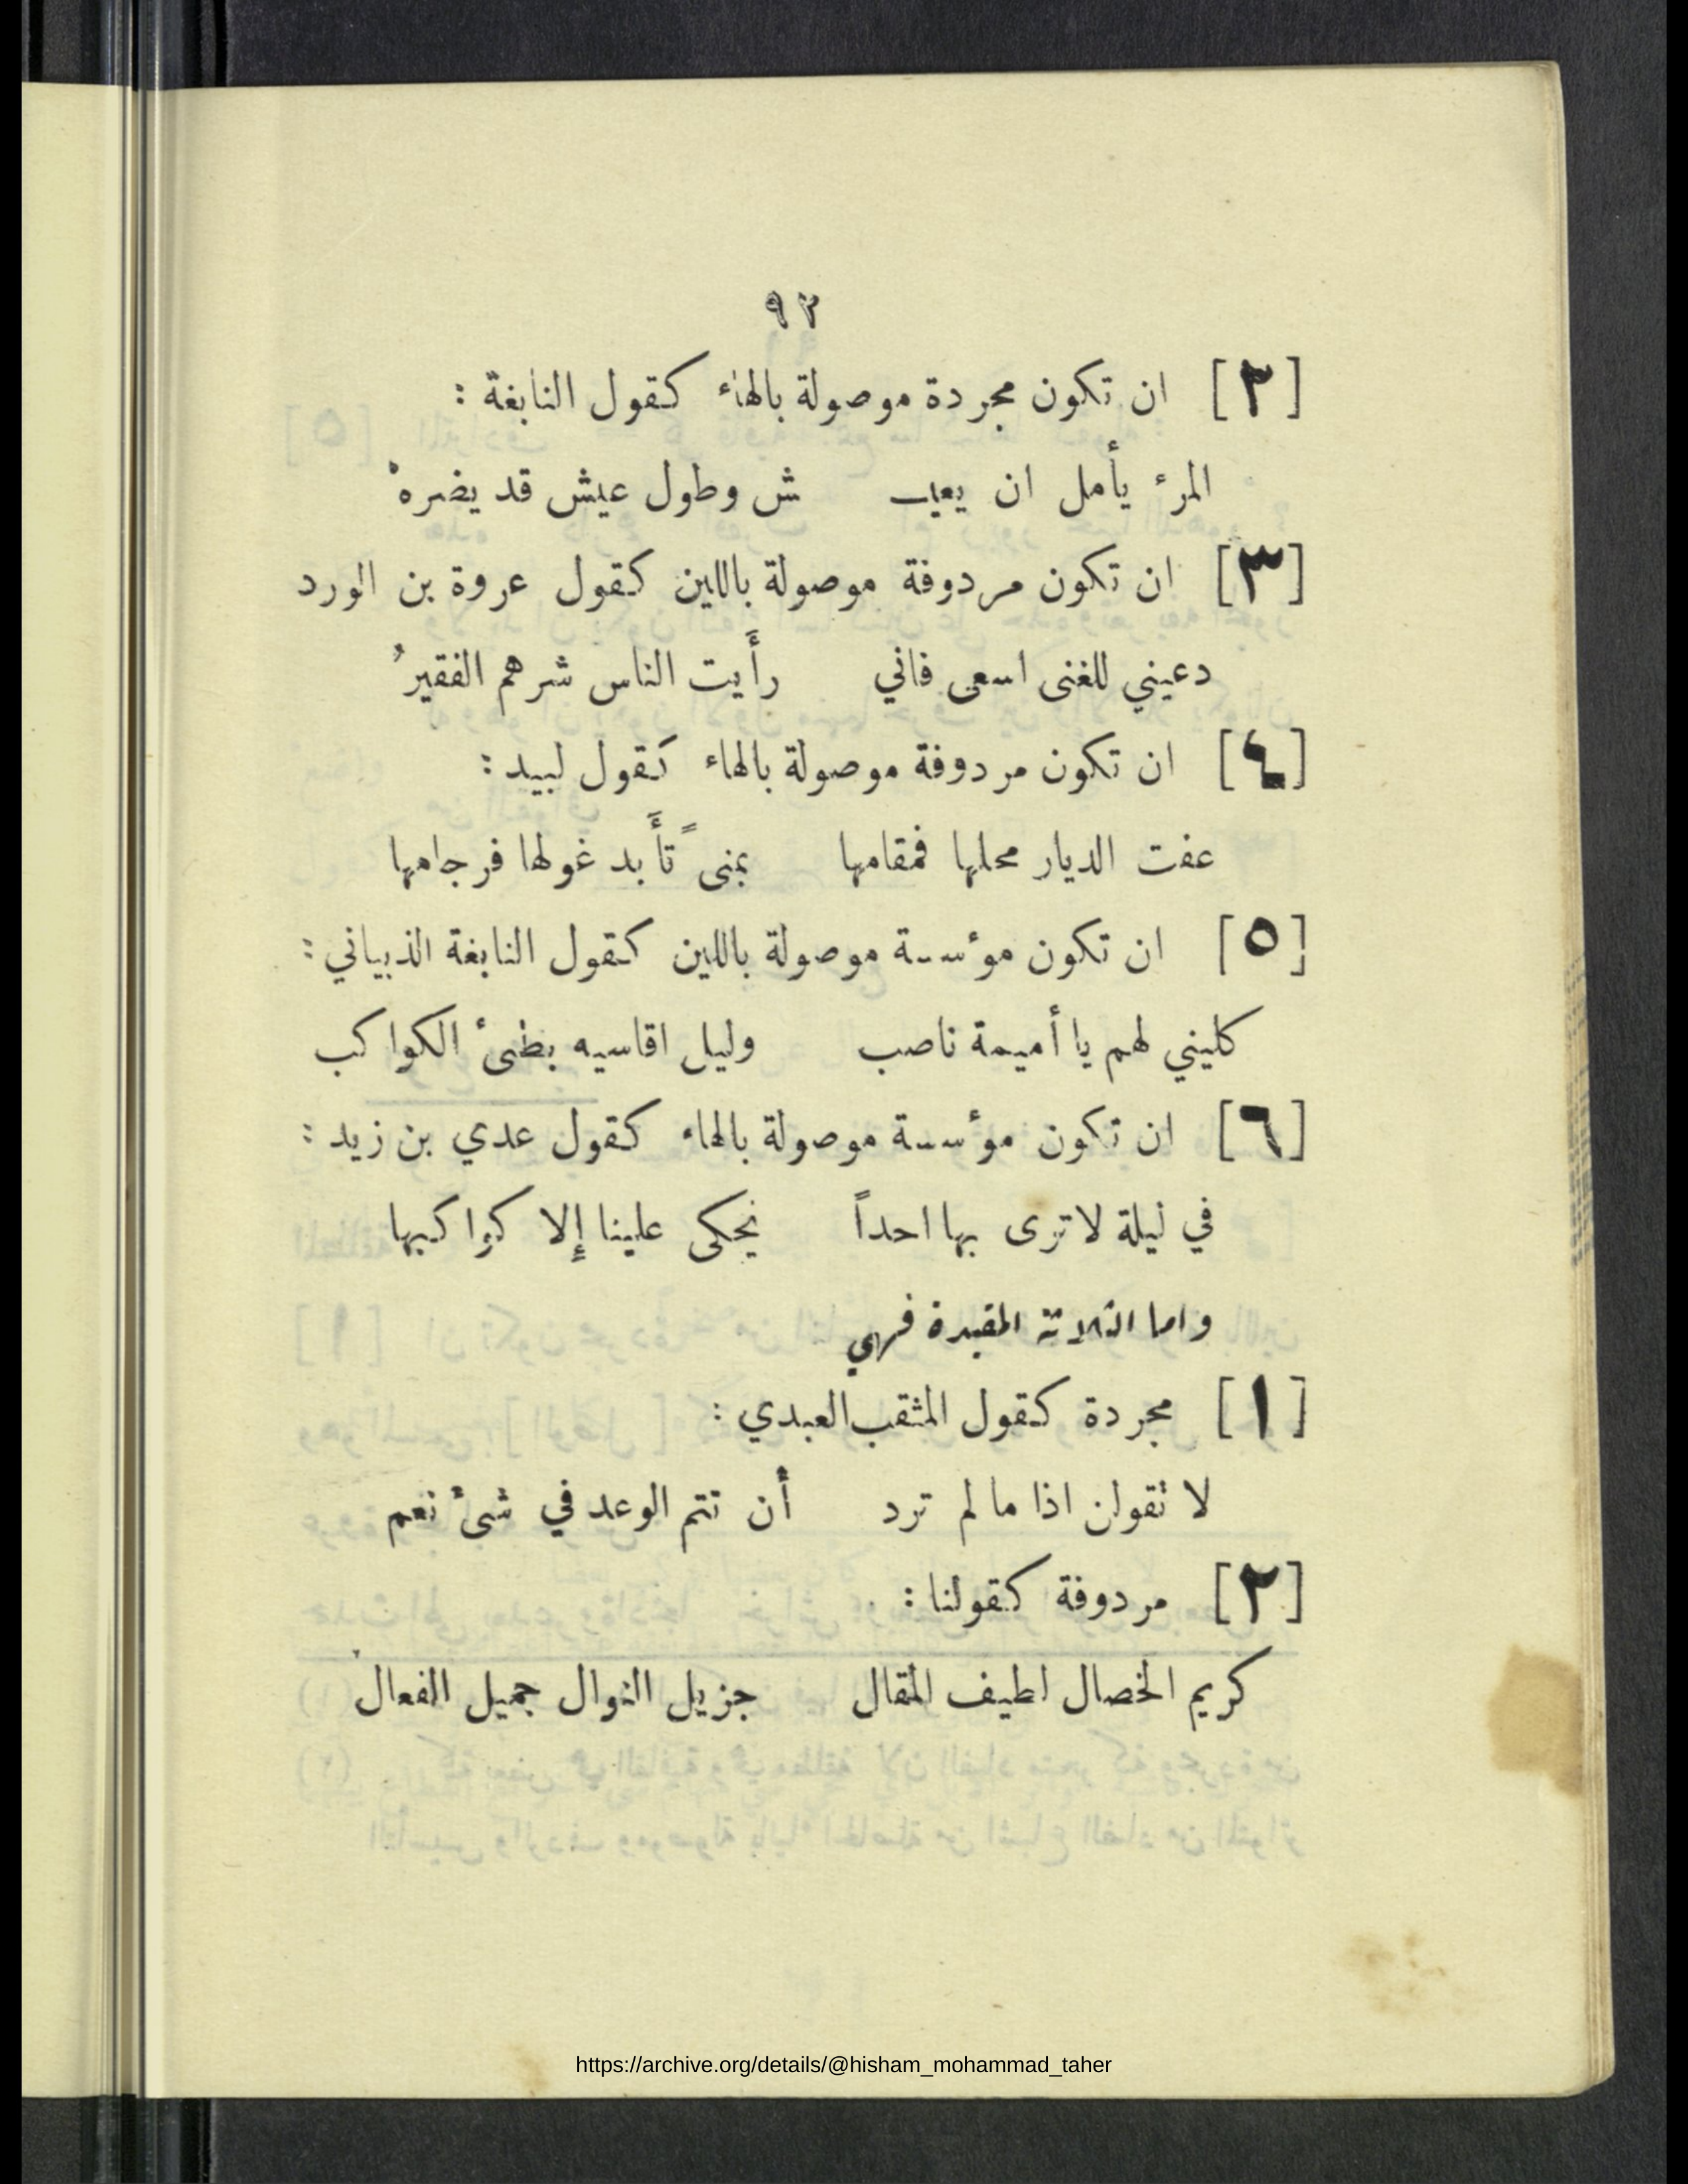 ٩٢
[٢] ان تكون مجردة موصولة بالهاء كقول النابغة :
المرء يأمل ان يعيـ ش وطول عيش قد يضرهْ
[٣] ان تكون مردوفة موصولة باللين كقول عروة بن الورد
دعيني للغنى اسعى فاني رأَيت الناس شرهم الفقيرُ
[٤] ان تكون مردوفة موصولة بالهاء كقول لبيد :
عفت الديار محلها فمقامها بمنىً تأَبد غولها فرجامها
[٥] ان تكون مؤسسة موصولة باللين كقول النابغة الذبياني :
كليني لهم يا أميمة ناصب وليل اقاسيه بطئ الكواكب
[٦] ان تكون مؤسسة موصولة بالهاء كقول عدي بن زيد :
في ليلة لا ترى بها احداً يحكى علينا إلا كواكبها
واما الثلاثة المقيدة فهي
[١] مجردة كقول المثقب العبدي :
لا تقولن اذا ما لم ترد أن تتم الوعد في شئ نعم
[٢] مردوفة كقولنا :
كريم الخصال لطيف المقال جزيل النوال جميل الفعال
https://archive.org/details/@hisham_mohammad_taher